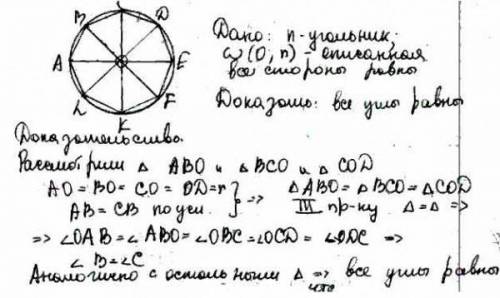 B C D
A E
L F
K
Дано: n-угольник;
ω (O, r) - описанная
все стороны равны
Доказать: все углы равны
Доказательство.
Рассмотрим Δ ABO и ΔBCO и Δ COD
AO = BO = CO = OD = r } => ΔABO = ΔBCO = ΔCOD
AB = CB по усл. III пр-ку Δ=Δ =>
=> ∠OAB = ∠ABO = ∠OBC = ∠OCD = ∠ODC =>
∠B = ∠C
Аналогично с остальными Δ => все углы равны
что